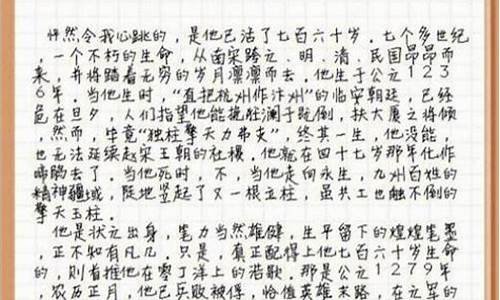 怦然令我心跳的，是他已活了七百六十岁。七个多世纪
，一个不朽的生命，从南宋跨元、明、清、民国昂昂而
来，并将踏着无穷的岁月凛凛而去。他生于公元123
6年。当他生时，“直把杭州作汴州”的临安朝廷，已经
危在旦夕，人们指望他能挽狂澜于既倒，扶大厦之将倾
，然而，毕竟“独柱擎天力弗支”，终其一生，他没能，
也无法延续赵宋王朝的社稷，他就在四十七岁那年化作
啼鹃去了。当他死时，不，当他走向永生，九州百姓的
精神疆域，陡地竖起了又一根立柱，虽共工也触不倒的
擎天玉柱。
他是状元出身，笔力当然雄健，生平留下的煌煌笔墨
，正不知有凡几。只是，真正配得上他七百六十岁生命
的，则首推他在零丁洋上的浩歌。那是公元1279年
，农历正月，他已兵败被俘，恰值英雄末路，在元军的